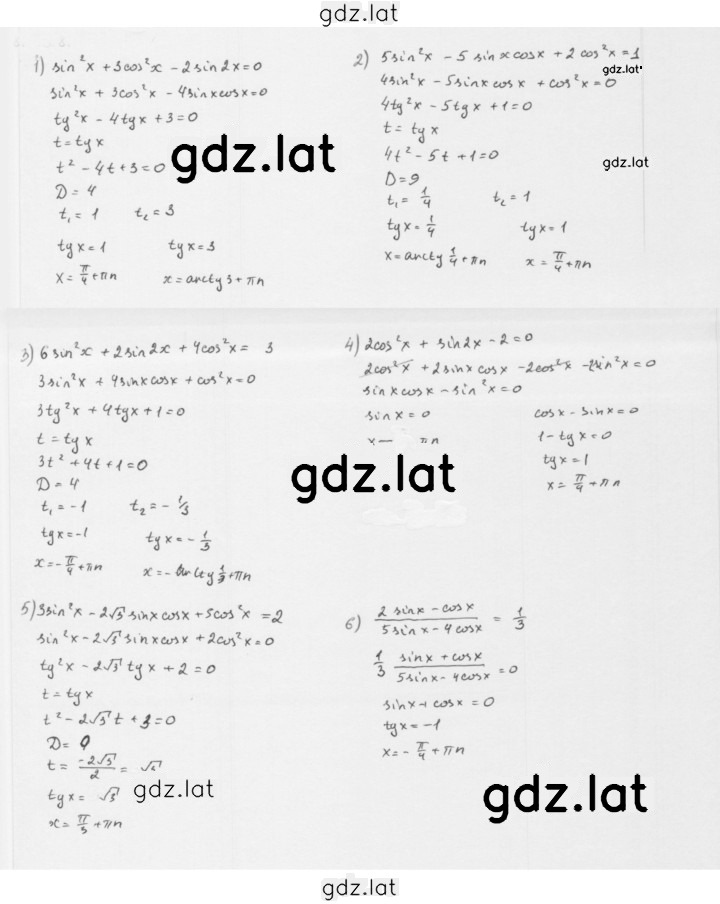 gdz.lat
1) sin²x + 3cos²x - 2sin2x = 0
sin²x + 3cos²x - 4sinxcosx = 0
tg²x - 4tgx + 3 = 0
t = tgx
t² - 4t + 3 = 0
D = 4
t₁ = 1 t₂ = 3
tgx = 1 tgx = 3
x = π/4 + πn x = arctg3 + πn
gdz.lat
2) 5sin²x - 5sinxcosx + 2cos²x = 1
gdz.lat
4sin²x - 5sinxcosx + cos²x = 0
4tg²x - 5tgx + 1 = 0
t = tgx
4t² - 5t + 1 = 0
gdz.lat
D = 9
t₁ = 1/4 t₂ = 1
tgx = 1/4 tgx = 1
x = arctg 1/4 + πn x = π/4 + πn
3) 6sin²x + 2sin2x + 4cos²x = 3
3sin²x + 4sinxcosx + cos²x = 0
3tg²x + 4tgx + 1 = 0
t = tgx
3t² + 4t + 1 = 0
D = 4
t₁ = -1 t₂ = -1/3
tgx = -1 tgx = -1/3
x = -π/4 + πn x = -arctg 1/3 + πn
4) 2cos²x + sin2x - 2 = 0
2cos²x + 2sinxcosx - 2cos²x - 2sin²x = 0
sinxcosx - sin²x = 0
sinx = 0 cosx - sinx = 0
x = πn 1 - tgx = 0
tgx = 1
x = π/4 + πn
gdz.lat
5) 3sin²x - 2√3 sinxcosx + 5cos²x = 2
sin²x - 2√3 sinxcosx + 2cos²x = 0
tg²x - 2√3 tgx + 2 = 0
t = tgx
t² - 2√3 t + 3 = 0
D = 0
t = -2√3/2 =
tgx = √3
x = π/3 + πn
gdz.lat
6) 2sinx - cosx / 5sinx - 4cosx = 1/3
1/3 sinx + cosx / 5sinx - 4cosx = 0
sinx + cosx = 0
tgx = -1
x = -π/4 + πn
gdz.lat
gdz.lat